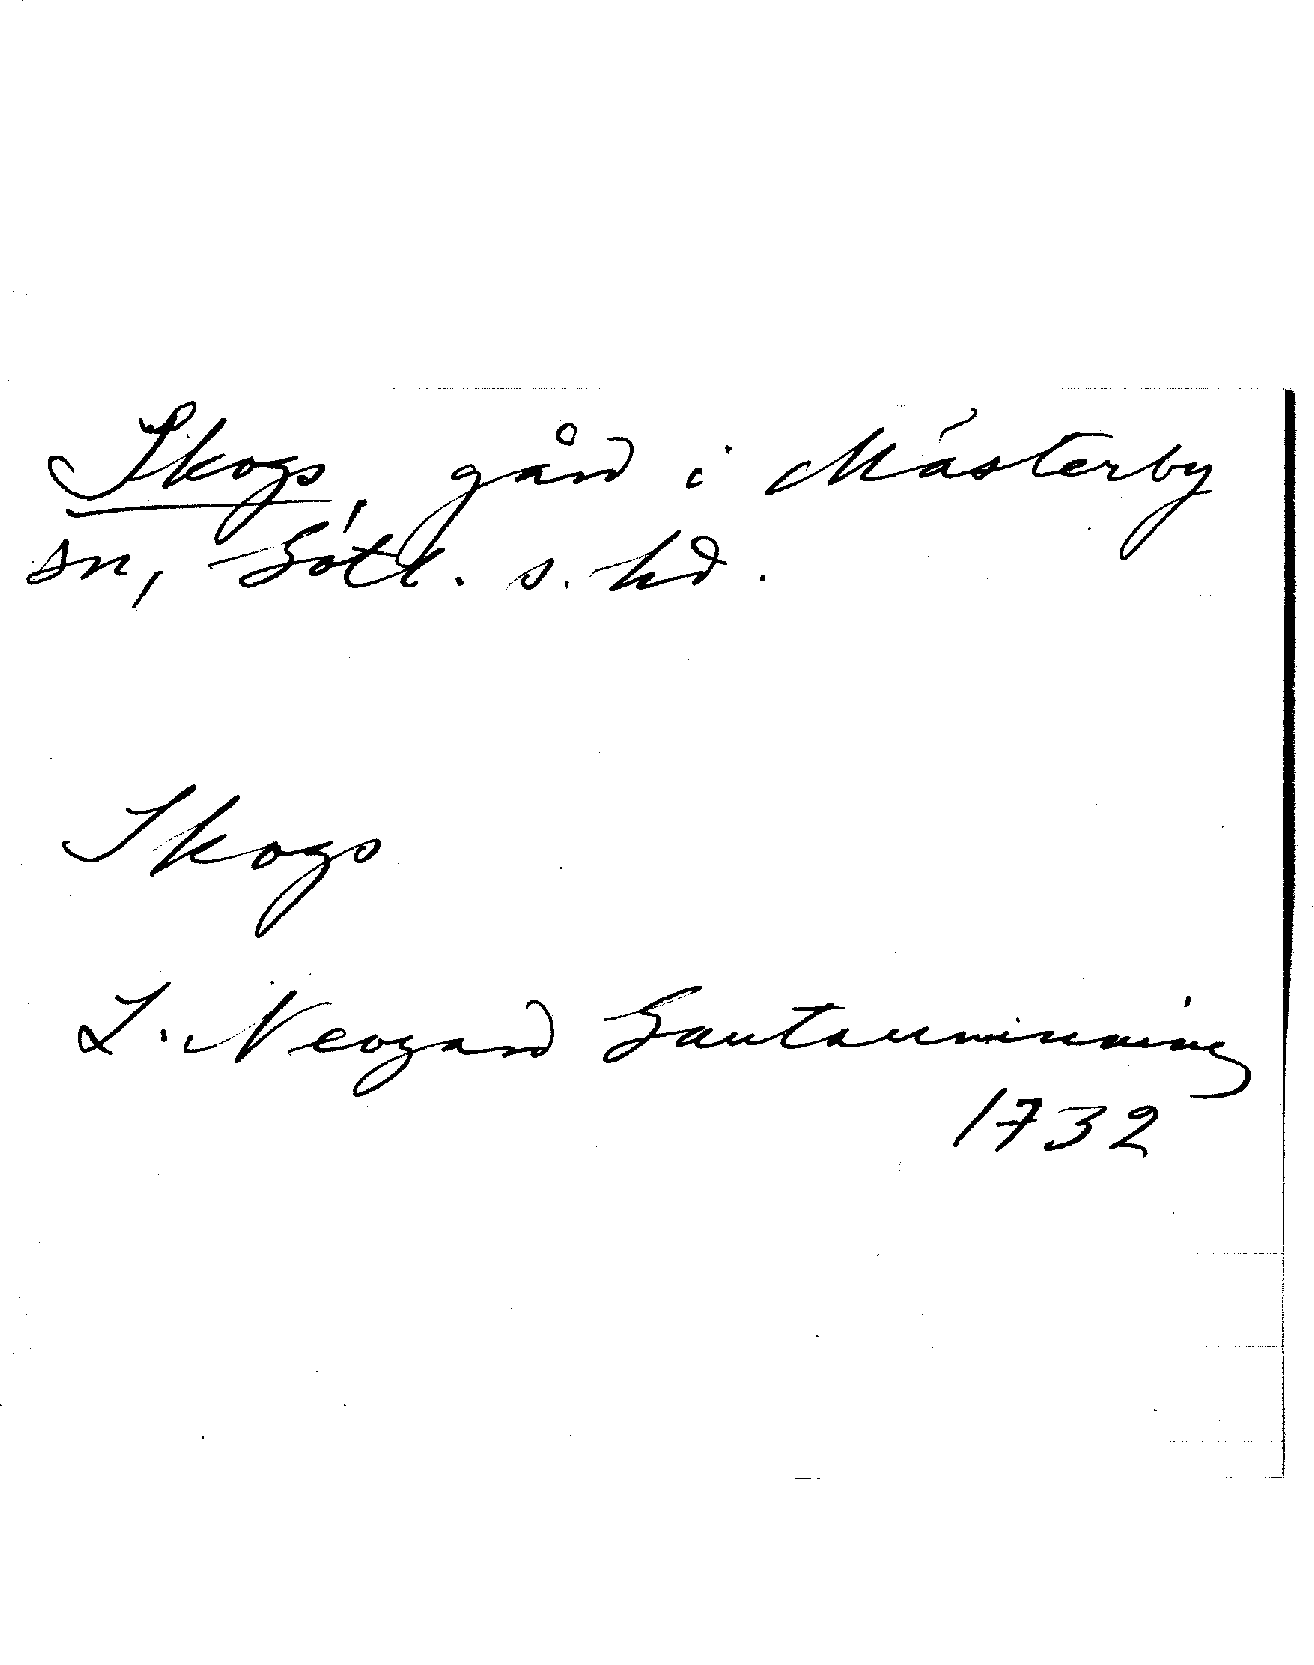 Skogs, gård i Mästerby
sn, Götl. s. hd.
Skogs
L. Neogard Gautauminning
1732